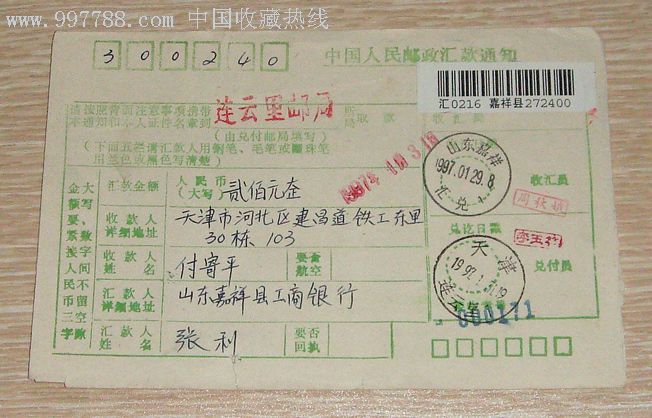 www.997788.com 中国收藏热线
300240
中国人民邮政汇款通知
汇0216 嘉祥县272400
请按照背面注意事项携带
本通知和本人证件名章到
连云里邮局
取款
(由兑付邮局填写)
(下面五栏请汇款人用钢笔、毛笔或圆珠笔
用蓝色或黑色写清楚)
山东嘉祥
1997.01.29.8
汇兑
收汇员
大写数字间不留空隙
金额要紧接人民币三字
汇款金额
人民币
(大写)
贰佰元
收款人
详细地址
天津市河北区建昌道铁工东里
30栋 103
兑讫日戳
天津
收款人
姓名
付寄平
要否
航空
兑付员
汇款人
详细地址
山东嘉祥县工商银行
000171
汇款人
姓名
张利
要否
回执